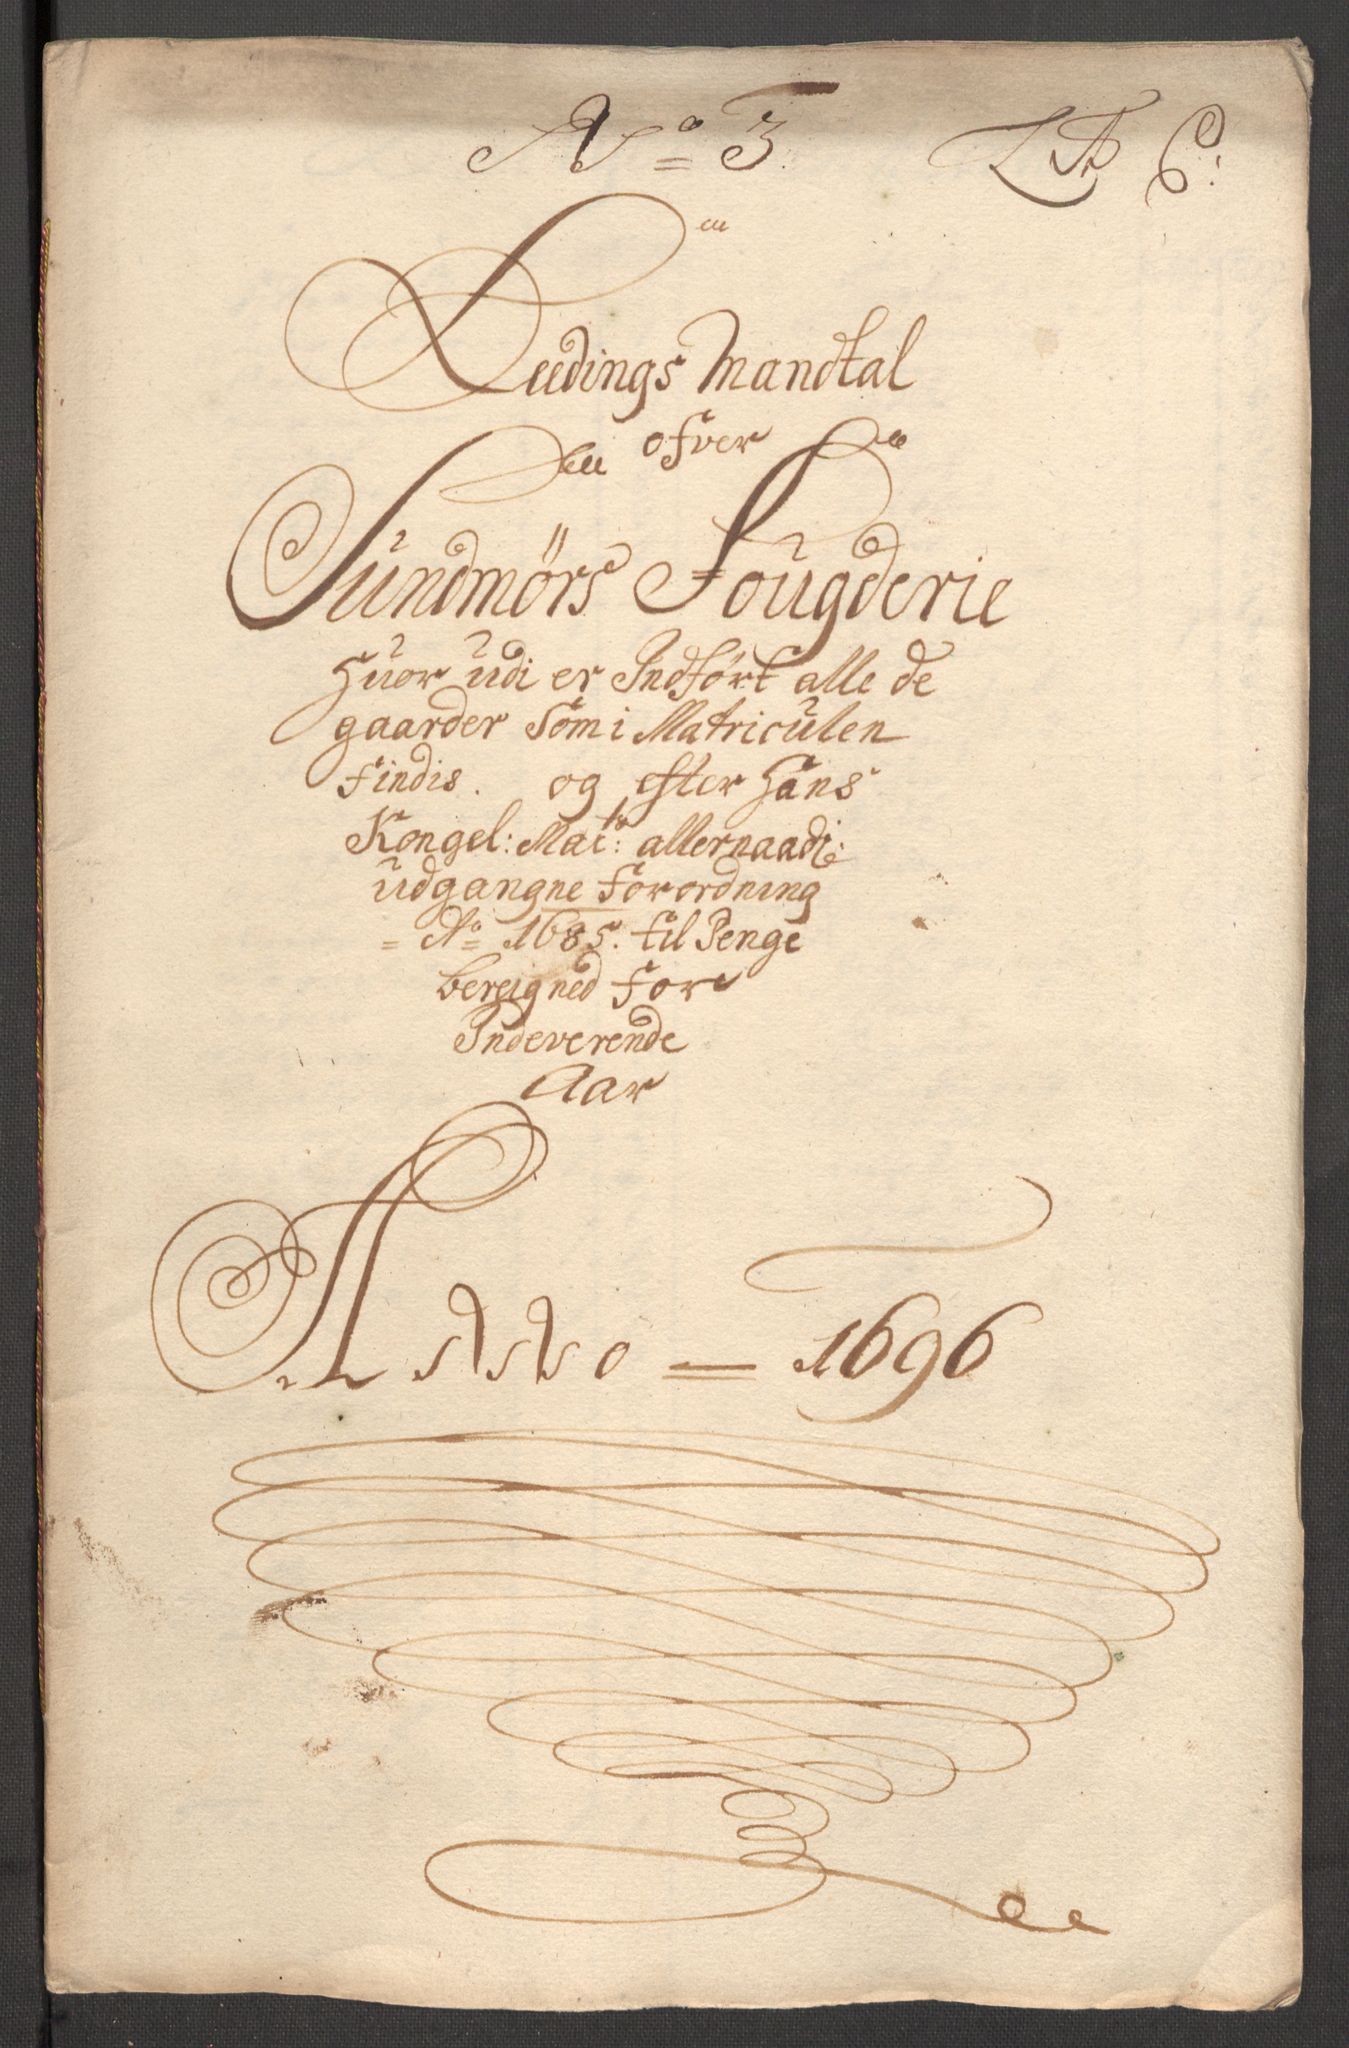 No 3 Lit C:
Leedings Mandtal
ofver
Sundmørs Fougderie
Huor udi er Indført alle de
gaarder Som i Matriculen
findis. og efter Hans
Kongel: Mat: allernaadi:
udgangne forordning
Ao 1685. til Penge
bereigned for
Indeverende
Aar
ANNO 1696